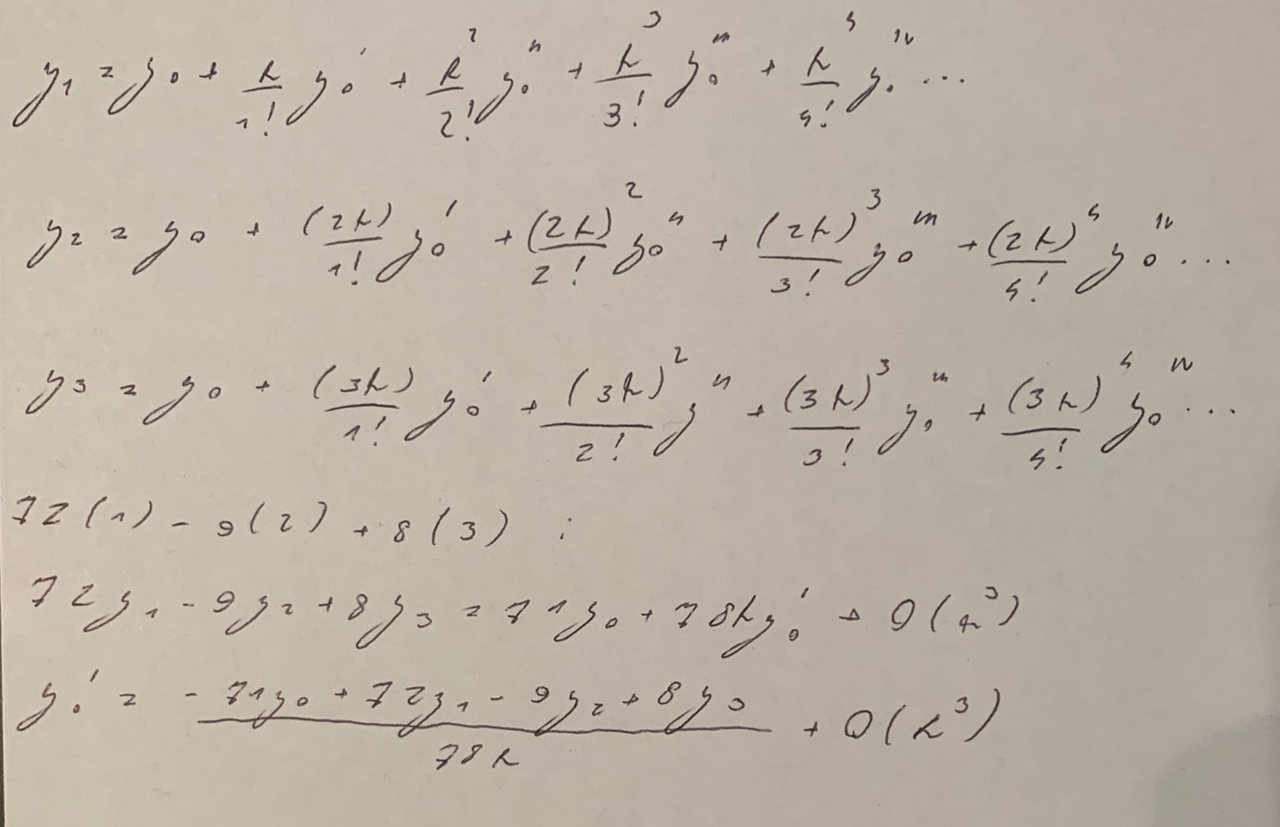 y₁ = y₀ + h/1! y₀' + h²/2! y₀'' + h³/3! y₀''' + h⁴/4! y₀ᴵⱽ ...
y₂ = y₀ + (2h)/1! y₀' + (2h)²/2! y₀'' + (2h)³/3! y₀''' + (2h)⁴/4! y₀ᴵⱽ ...
y₃ = y₀ + (3h)/1! y₀' + (3h)²/2! y'' + (3h)³/3! y₀''' + (3h)⁴/4! y₀ᴵⱽ ...
72(1) - 9(2) + 8(3) :
72y₁ - 9y₂ + 8y₃ = 71y₀ + 78hy₀' + O(h³)
y₀' = (-71y₀ + 72y₁ - 9y₂ + 8y₃)/78h + O(h³)